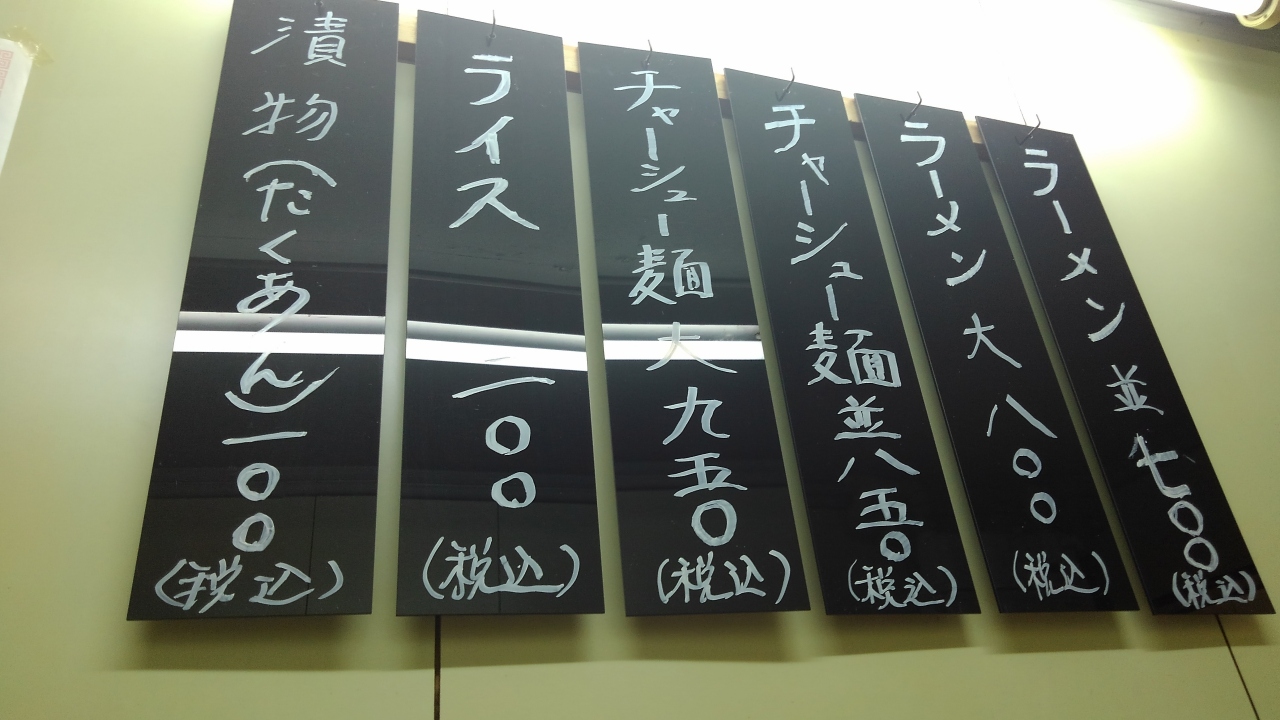 ラーメン並七〇〇(税込)
ラーメン大八〇〇(税込)
チャーシュー麺並八五〇(税込)
チャーシュー麺大九五〇(税込)
ライス一〇〇(税込)
漬物(たくあん)一〇〇(税込)